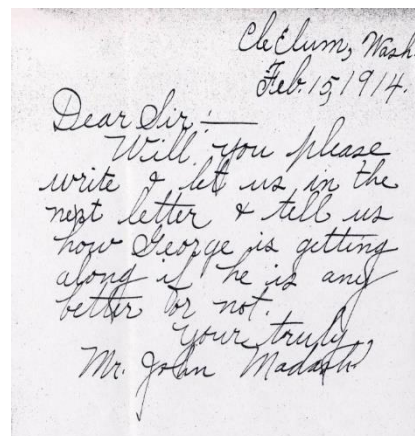 Cle Elum, Wash.
Feb. 15, 1914.
Dear Sir:—
Will you please
write & let us in the
next letter & tell us
how George is getting
along if he is any
better or not.
Your truly
Mr. John Madash